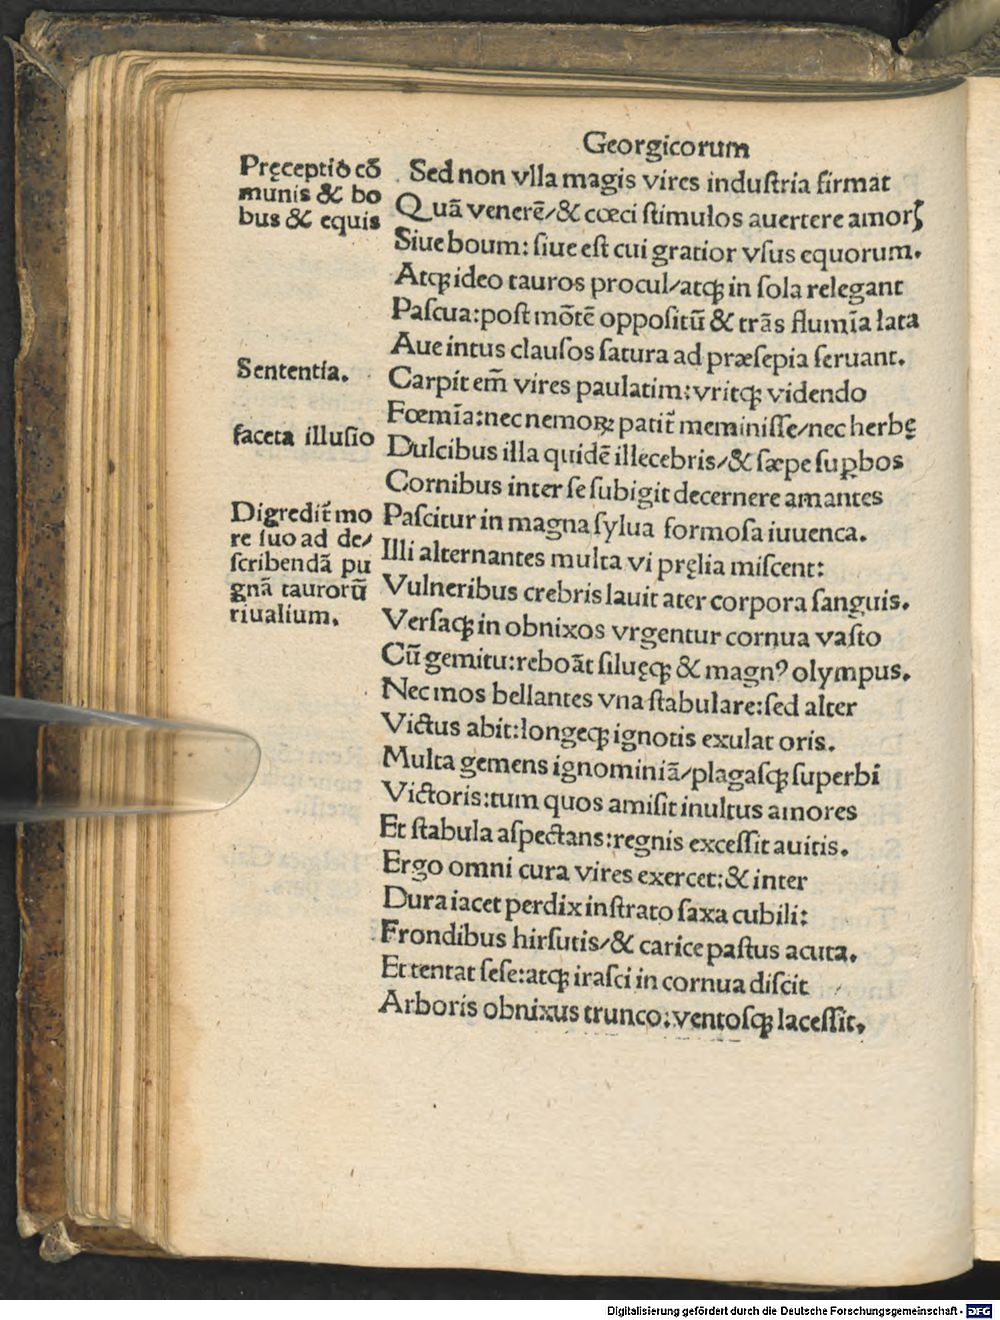 Georgicorum
Pręceptio cō
munis & bo
bus & equis
Sed non vlla magis vires induſtria firmat
Quā venerē/& cœci ſtimulos auertere amorꝭ
Siue boum: ſiue eſt cui gratior vſus equorum.
Atqꝫ ideo tauros procul/atqꝫ in ſola relegant
Paſcua:poſt mōtē oppoſitū & trās flumīa lata
Aue intus clauſos ſatura ad præſepia ſeruant.
Sententia.
Carpit em̄ vires paulatim:vritqꝫ videndo
Fœmīa:nec nemoꝝ patit᷑ meminiſſe/nec herbę
faceta illuſio
Dulcibus illa quidē illecebris/& ſæpe ſuꝑbos
Cornibus inter ſe ſubigit decernere amantes
Digredit᷑ mo
re ſuo ad de/
ſcribendā pu
gnā taurorū
riualium.
Paſcitur in magna ſylua formoſa iuuenca.
Illi alternantes multa vi pręlia miſcent:
Vulneribus crebris lauit ater corpora ſanguis.
Verſaqꝫ in obnixos vrgentur cornua vaſto
Cū gemitu:reboāt ſiluęqꝫ & magnꝰ olympus.
Nec mos bellantes vna ſtabulare:ſed alter
Victus abit:longeqꝫ ignotis exulat oris.
Multa gemens ignominiā/plagaſqꝫ ſuperbi
Victoris:tum quos amiſit inultus amores
Et ſtabula aſpectans:regnis exceſſit auitis.
Ergo omni cura vires exercet:& inter
Dura iacet perdix inſtrato ſaxa cubili:
Frondibus hirſutis/& carice paſtus acuta.
Et tentat ſeſe:atqꝫ iraſci in cornua diſcit
Arboris obnixus trunco:ventoſqꝫ laceſſit.
Digitalisierung gefördert durch die Deutsche Forschungsgemeinschaft - DFG